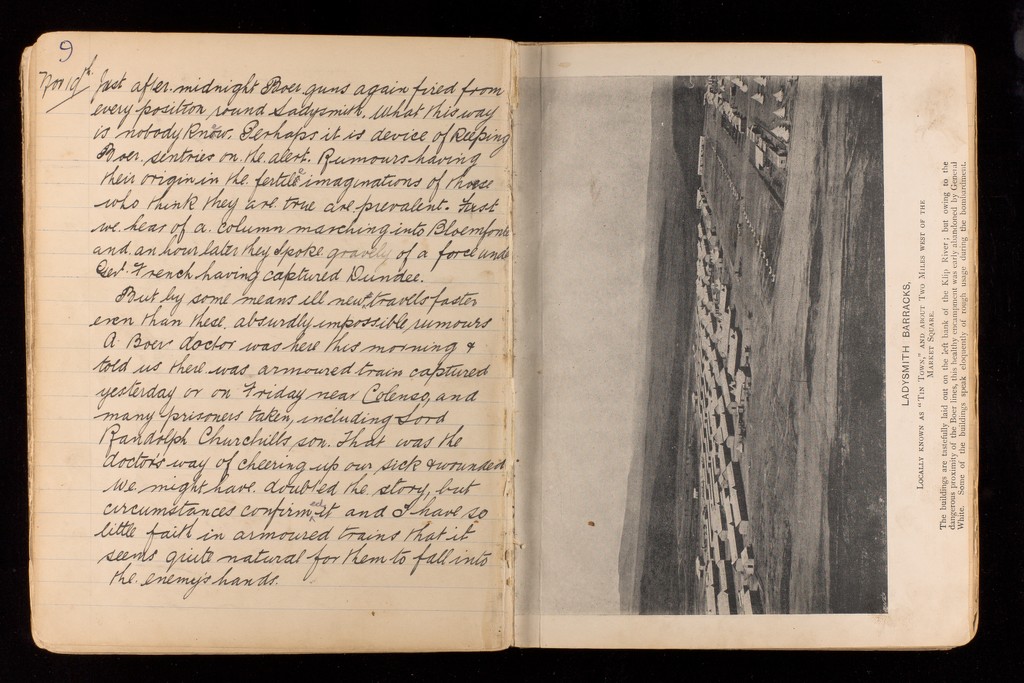 9
Nov 19th. Just after midnight Boer guns again fired from
every position round Ladysmith, what this way
is nobody knows. Perhaps it is device of keeping
Boer sentries on the alert. Rumours having
their origin in the fertile imaginations of those
who think they are true are prevalent. First
we hear of a column marching into Bloemfonte
and an hour later they spoke gravely of a force unde
Genl. French having captured Dundee.
But by some means ill news travells faster
even than these absurdly impossible rumours
A Boer doctor was here this morning &
told us there was armoured train captured
yesterday or on Friday near Colenso, and
many prisoners taken, including Lord
Randolph Churchills son. That was the
doctors way of cheering up our sick & wounded
We might have doubted the story, but
circumstances confirmed it and I have so
little faith in armoured trains that it
seems quite natural for them to fall into
the enemy's hands.
LADYSMITH BARRACKS,
LOCALLY KNOWN AS "TIN TOWN," AND ABOUT TWO MILES WEST OF THE
MARKET SQUARE.
The buildings are tastefully laid out on the left bank of the Klip River; but owing to the
dangerous proximity of the Boer lines, this healthy encampment was early abandoned by General
White. Some of the buildings speak eloquently of rough usage during the bombardment.